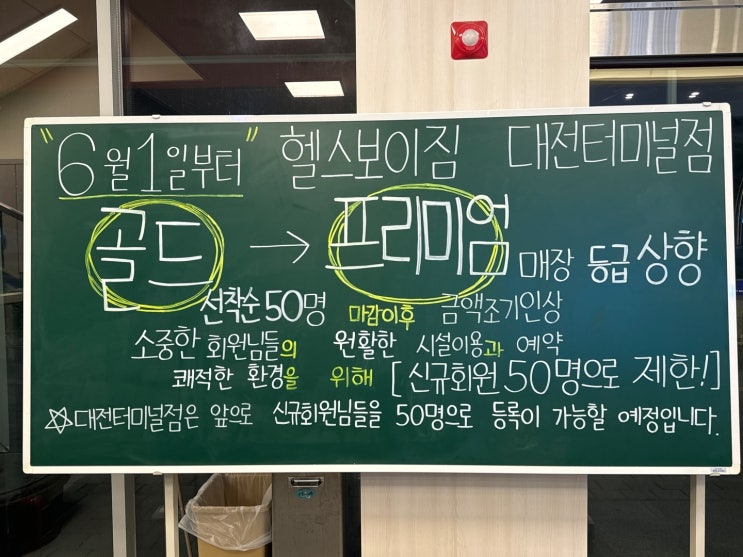 "6월1일부터" 헬스보이짐 대전터미널점
골드 → 프리미엄 매장 등급 상향
선착순 50명 마감이후 금액조기인상
소중한 회원님들의 원활한 시설이용과 예약
쾌적한 환경을 위해 [신규회원 50명으로 제한!]
☆대전터미널점은 앞으로 신규회원님들을 50명으로 등록이 가능할 예정입니다.